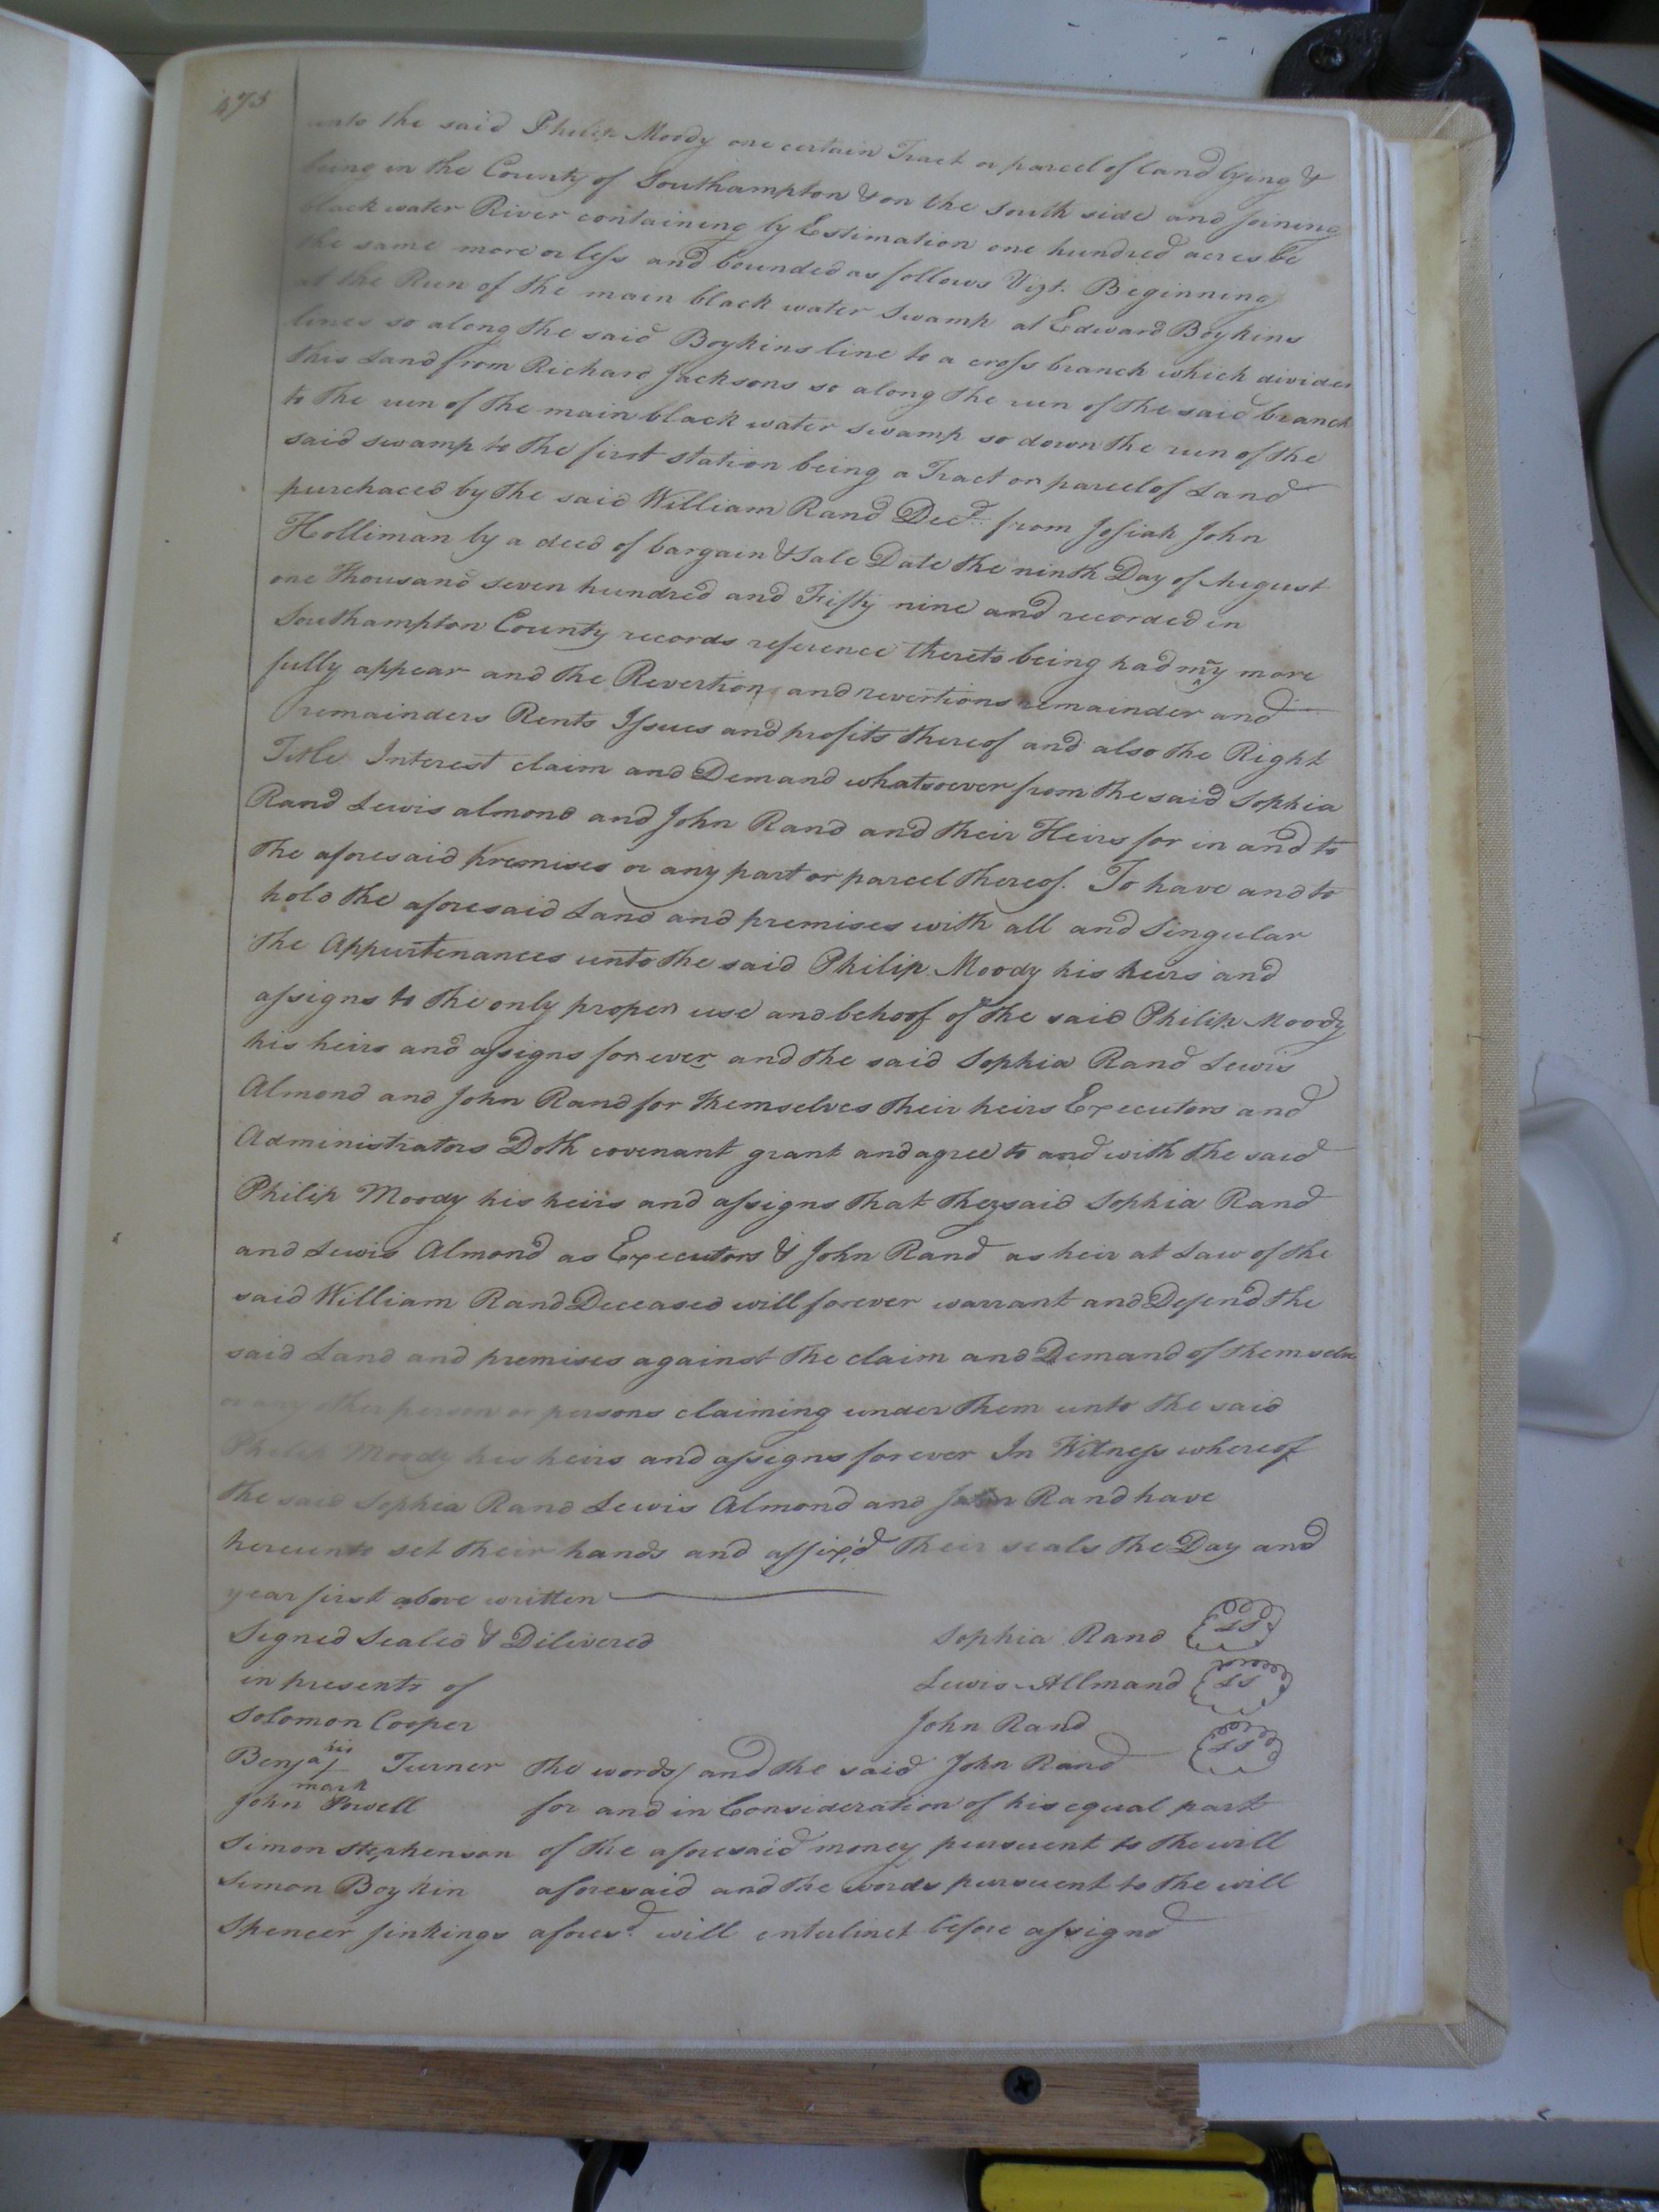 473
unto the said Philip Moody one certain Tract or parcel of land lying &
being in the County of Southampton & on the South side and joining
black water River containing by Estimation one hundred acres be
the same more or less and bounded as follows Vizt. Beginning
at the Run of the main black water Swamp at Edward Boykins
lines so along the said Boykins line to a cross branch which divides
this Land from Richard Jacksons so along the run of the said branch
to the run of the main black water swamp so down the run of the
said swamp to the first station being a Tract or parcel of Land
purchaced by the said William Rand Decd. from Josiah John
Holliman by a deed of bargain & Sale Date the ninth Day of August
one thousand seven hundred and Fifty nine and recorded in
Southampton County records reference thereto being had may more
fully appear and the Revertion and revertions remainder and
remainders Rents Issues and profits thereof and also the Right
Title Interest claim and Demand whatsoever from the said Sophia
Rand Lewis almond and John Rand and their Heirs for in and to
the aforesaid premises or any part or parcel thereof. To have and to
hold the aforesaid Land and premises with all and Singular
the Appurtenances unto the said Philip Moody his heirs and
assigns to the only proper use and behoof of the said Philip Moody
his heirs and assigns forever and the said Sophia Rand Lewis
Almond and John Rand for themselves their heirs Executors and
Administrators Doth covenant grant and agree to and with the said
Philip Moody his heirs and assigns that they said Sophia Rand
and Lewis Almond as Executors & John Rand as heir at Law of the
said William Rand Deceased will forever warrant and Defend the
said Land and premises against the claim and Demand of themselve
or any other person or persons claiming under them unto the said
Philip Moody his heirs and assigns forever In Witness whereof
the said Sophia Rand Lewis Almond and John Rand have
hereunto set their hands and affix'd their seals the Day and
year first above written
Signed Sealed & Dilivered Sophia Rand LS
in presents of Lewis Allmand LS
Solomon Cooper John Rand LS
Benja his mark Turner the words / and the said John Rand
John Powell for and in Consideration of his equal part
Simon Stephenson of the aforesaid money pursuent to the will
Simon Boykin aforesaid and the words pursuent to the will
Spencer Jinkings aforesd. will enterlinet before assignd